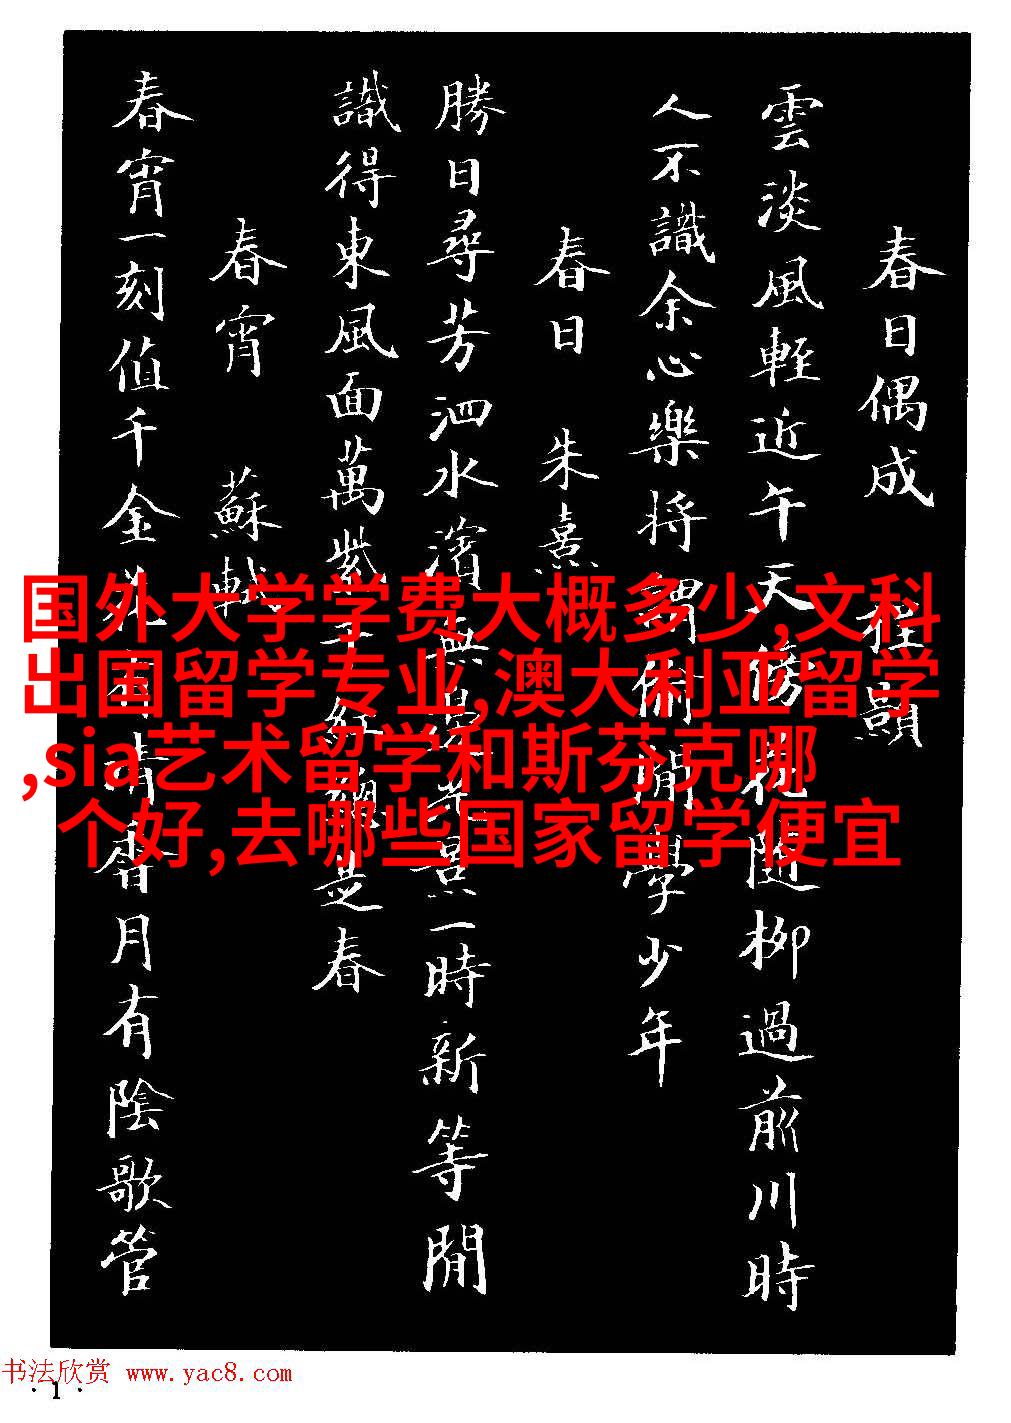 春日偶成 程顥
雲淡風輕近午天傍花隨柳過前川時
人不識余心樂將謂偷閒學少年
春日 朱熹
勝日尋芳泗水濱無邊光景一時新等閒
識得東風面萬紫千紅總是春
春宵 蘇軾
春宵一刻值千金花有清香月有陰歌管
国外大学学费大概多少,文科
出国留学专业,澳大利亚留学
,sia艺术留学和斯芬克哪
个好,去哪些国家留学便宜
书法欣赏 www.yac8.com
·1·